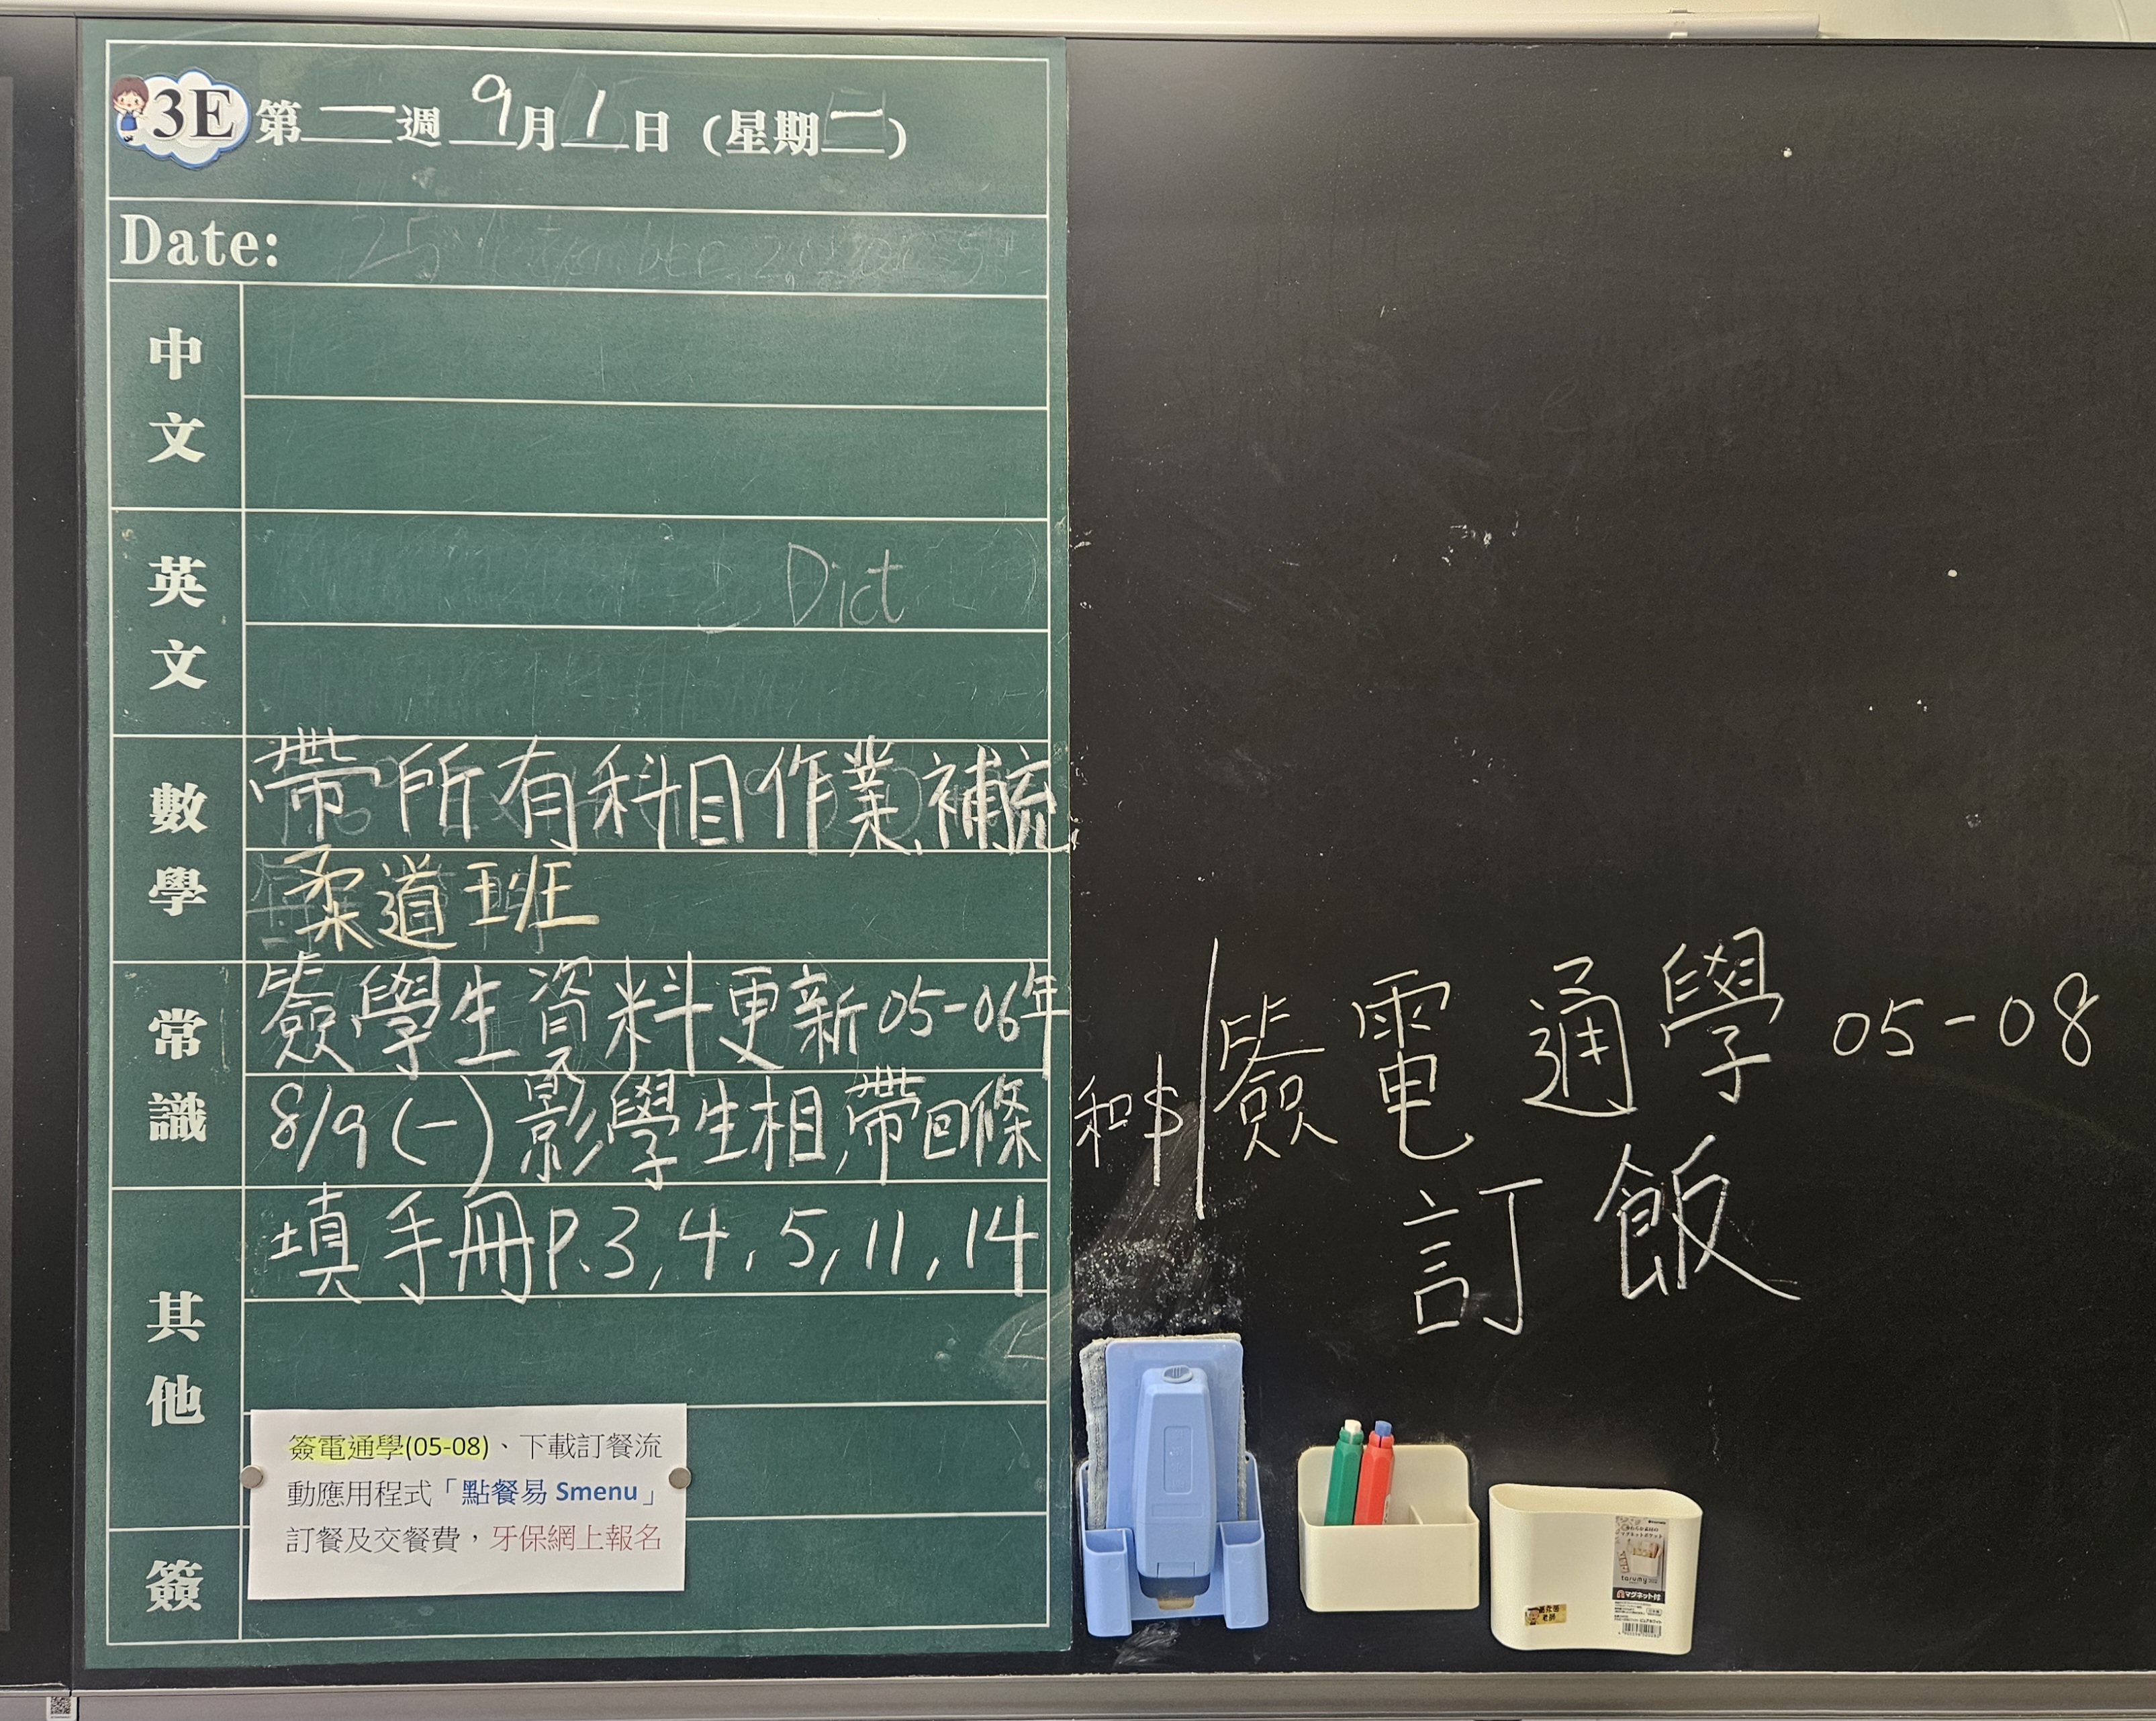 3E 第一週 9月1日 (星期二)
Date:
中文
英文
Dict
數學
帶所有科目作業,補充
柔道班
常識
簽學生資料更新05-06年
8/9(一)影學生相,帶回條和$
其他
填手冊P.3,4,5,11,14
簽電通學(05-08)、下載訂餐流
動應用程式「點餐易 Smenu」
訂餐及交餐費，牙保網上報名
簽
簽電通學05-08
訂飯
マグネット付